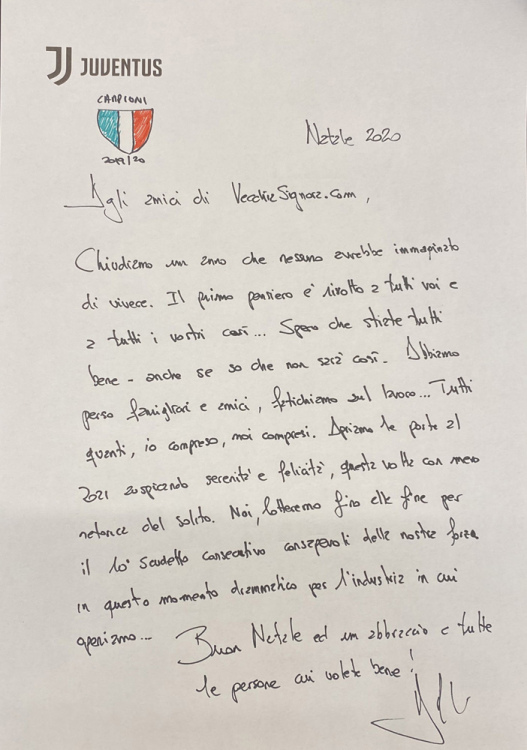 JUVENTUS
CAMPIONI
2019/20
Natale 2020
Agli amici di VecchiaSignora.com,
Chiudiamo un anno che nessuno avrebbe immaginato
di vivere. Il primo pensiero è rivolto a tutti voi e
a tutti i vostri cari... Spero che stiate tutti
bene - anche se so che non sarà così. Abbiamo
perso famigliari e amici, fatichiamo sul lavoro... Tutti
quanti, io compreso, noi compresi. Apriamo le porte al
2021 auspicando serenità e felicità, questa volta con meno
retorica del solito. Noi, lotteremo fino alla fine per
il 10° Scudetto consecutivo consapevoli della nostra forza
in questo momento drammatico per l'industria in cui
operiamo...
Buon Natale ed un abbraccio a tutte
le persone cui volete bene!